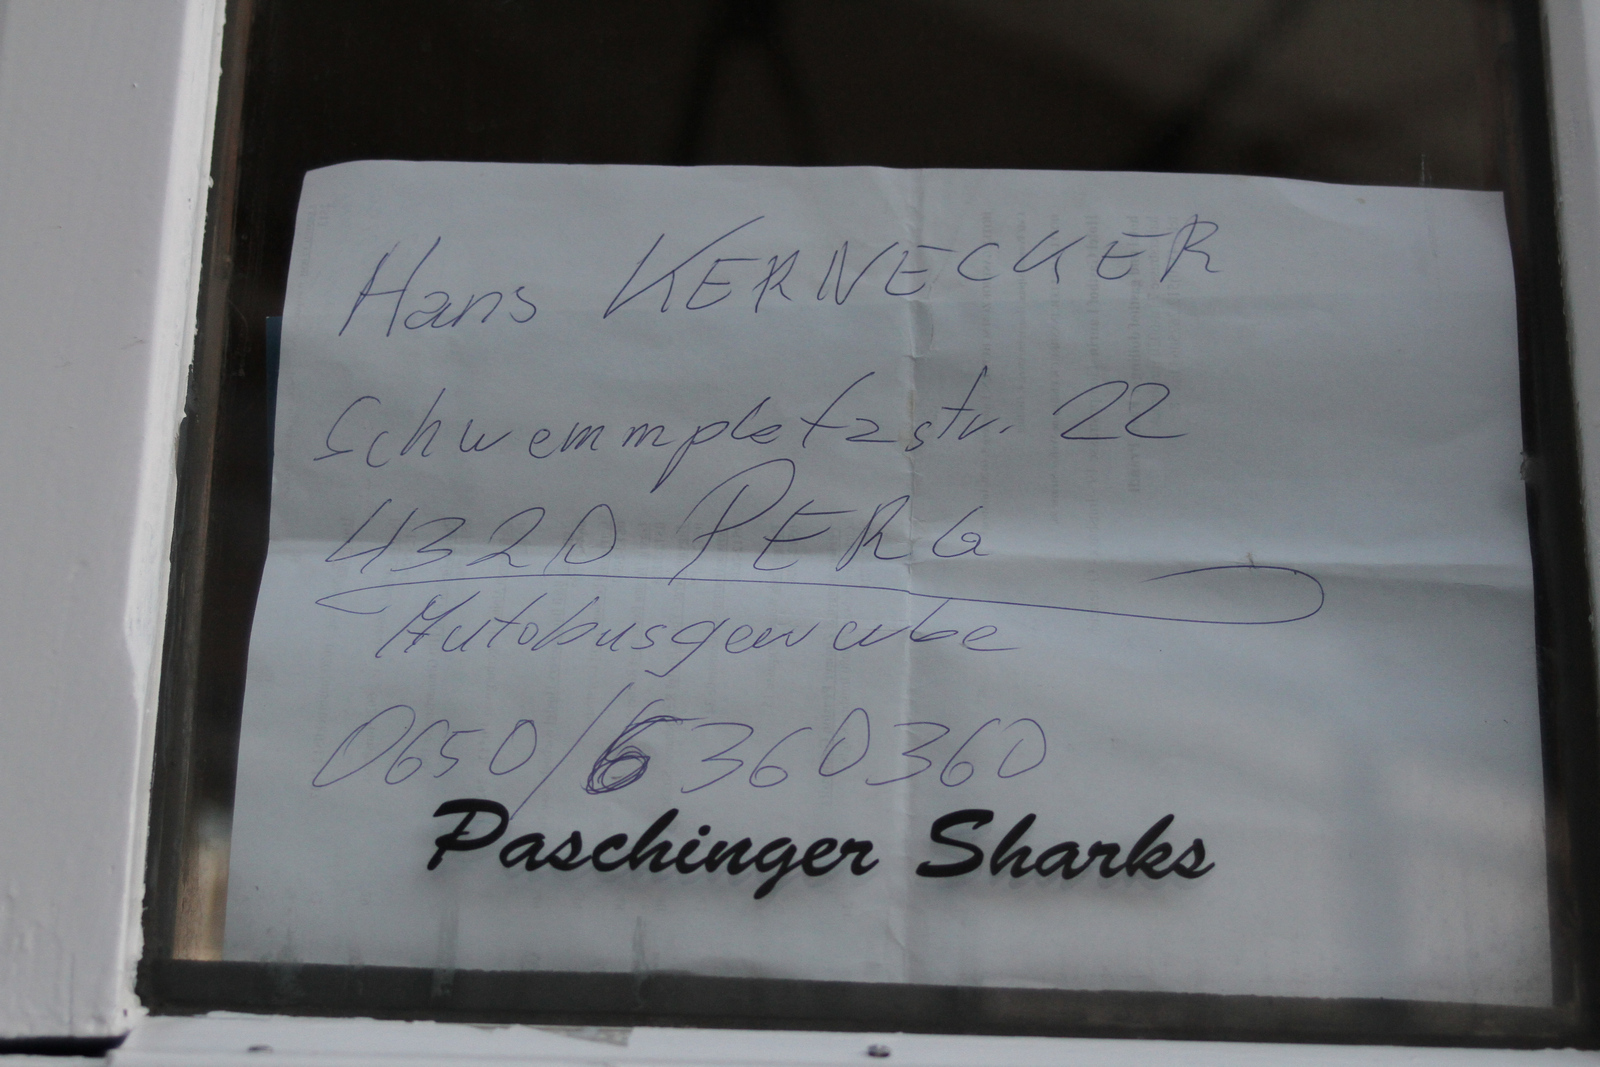 Hans KERNECKER
Schwemmplatzstr. 22
4320 PERG
Autobusgewerbe
0650/6360360
Paschinger Sharks